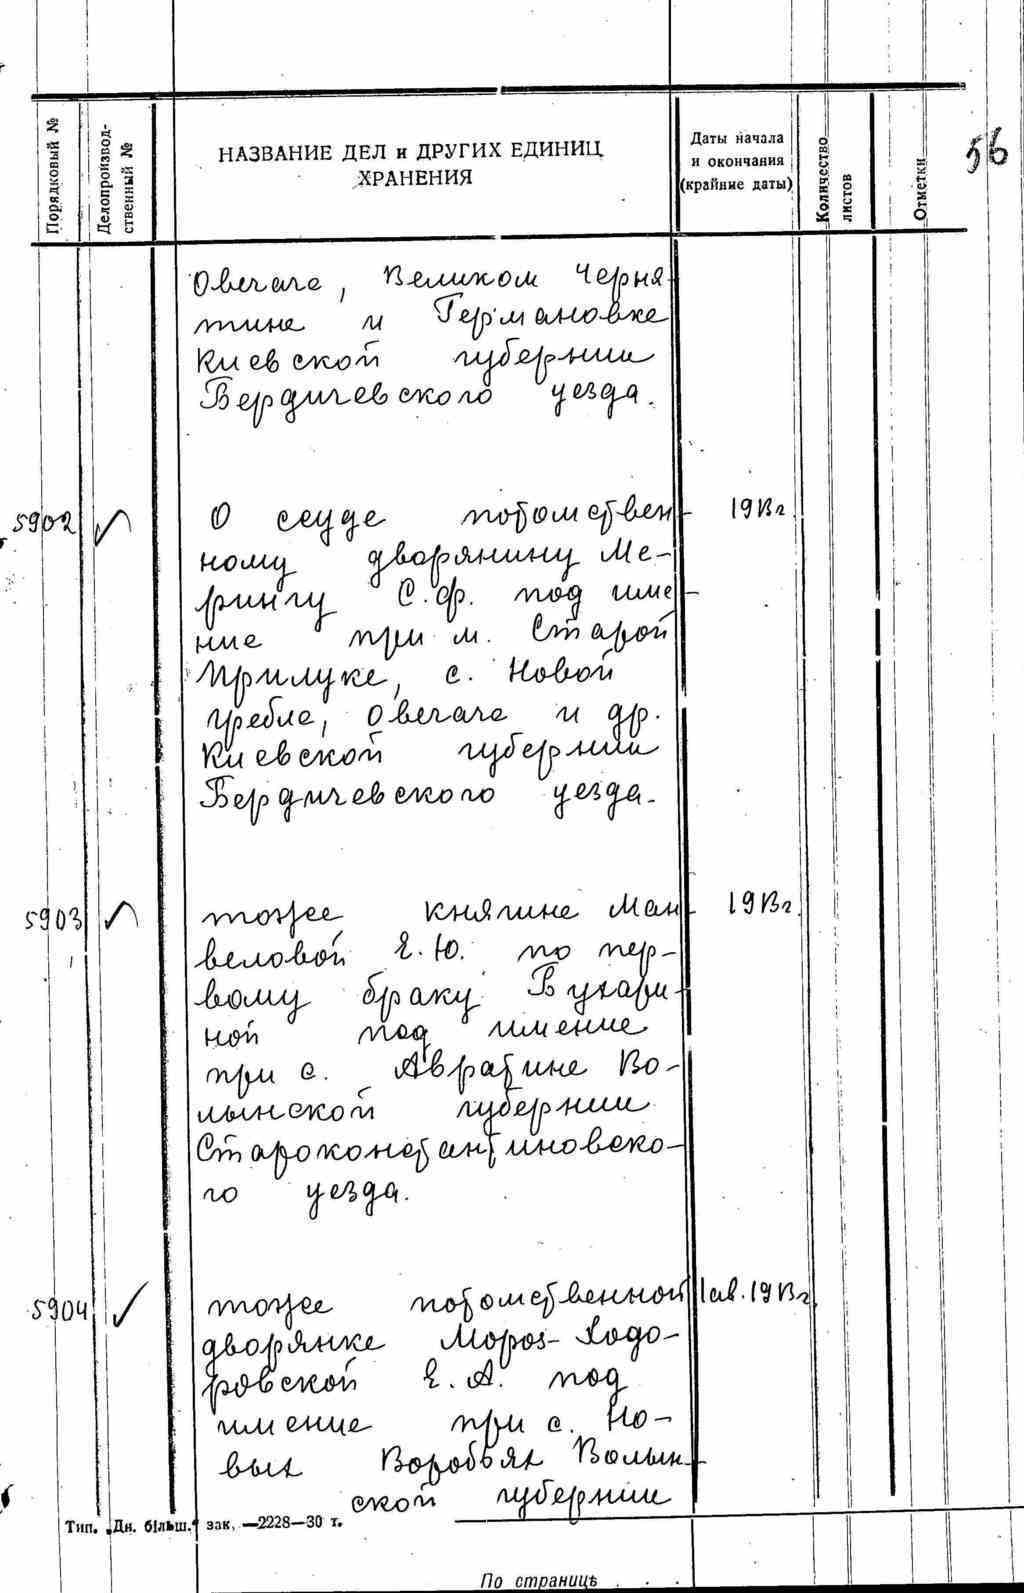 56
Порядковый №
Делопроизвод-
ственный №
НАЗВАНИЕ ДЕЛ и ДРУГИХ ЕДИНИЦ
ХРАНЕНИЯ
Даты начала
и окончания
(крайние даты)
Количество
листов
Отметки
Овечаче, Великом Черня-
тине и Германовке
Киевской губернии
Бердичевского уезда.
5902 О ссуде потомствен- 1913г.
ному дворянину Ме-
рингу С.Ф. под име-
ние при м. Старой
Прилуке, с. Новой
гребле, Овечаче и др.
Киевской губернии
Бердичевского уезда.
5903 тоже княгине Ман- 1913г.
веловой Е.Ю. по пер-
вому браку Бухари-
ной под имение
при с. Авратине Во-
лынской губернии
Староконстантиновско-
го уезда.
5904 тоже потомственной 1 ав. 1913г.
дворянке Мороз-Ходо-
ровской Е.А. под
имение при с. Но-
вых Воробьях Волын-
ской губернии
Тип. „Дн. більш." зак. —2228—30 т.
По страницѣ . . .